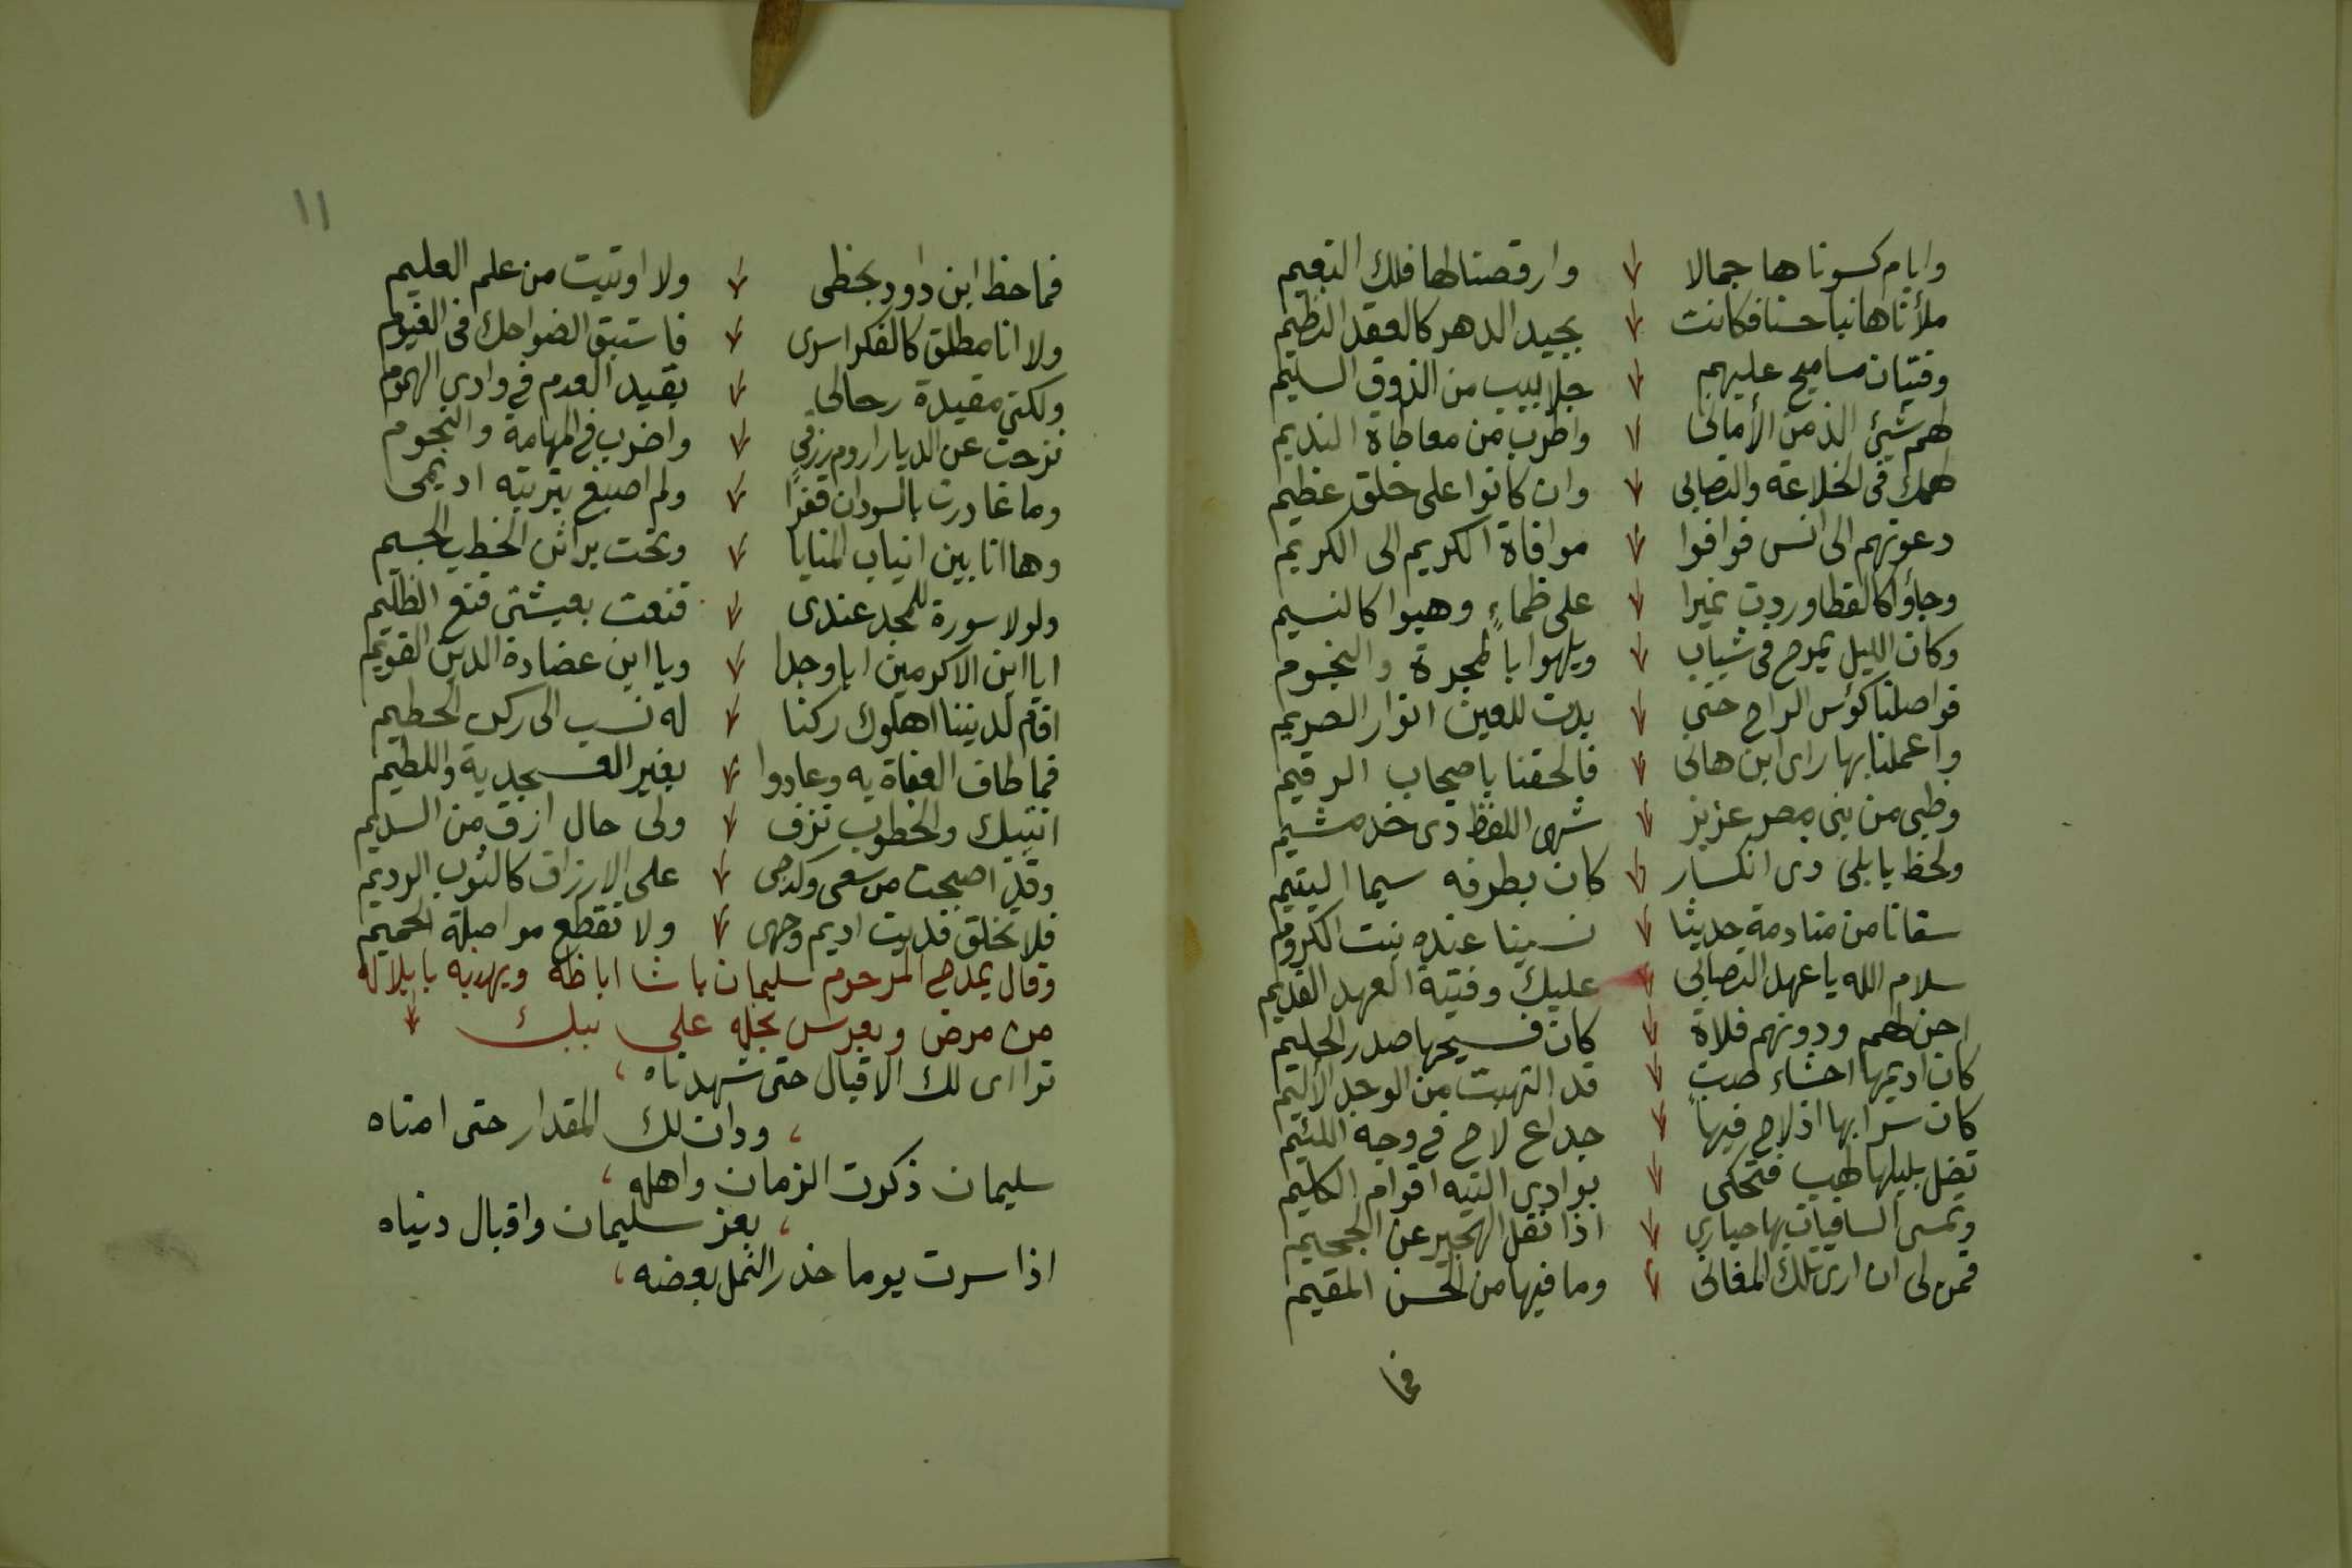 وايام كسوناها جمالا وارقصنا لها فلك النعيم
ملأناها نباحسنا فكانت بجيد الدهر كالعقد النظيم
وفتيان مساميح عليهم جلابيب من الذوق السليم
لهم شيئ الذ من الأمانى واطرب من معاطاة النديم
لهمك فى الخلاعة والتصابى وان كانوا على خلق عظيم
دعوتهم الى انس فوافوا موافاة الكريم الى الكريم
وجاؤا كالقطا وردت نميرا على ظماءٍ وهبوا كالنسيم
وكان الليل يمرح فى شباب ويلهوا بالمجرة والنجوم
فواصلنا كؤس الراح حتى بدت للعين انوار الصريم
واعملنا بها راى ابن هانى فالحقنا باصحاب الرقيم
وظبى من بنى مصر عزيز شهى اللفظ ذى خد مشيم
ولحظ بابلى ذى انكسار كان بطرفه سيما اليتيم
سقانا من منادمة حديثا نسينا عنده بنت الكروم
سلام الله يا عهد التصابى عليك وفتية العهد القديم
احن لهم ودونهم فلاة كان فسيحها صدر الحليم
كان اديمها احشاء صبٍ قد التهبت من الوجد الأليم
كان سرابها اذ لاح فيها خداع لاح فى وجه اللئيم
تضل بليلها لهب فتحكى بوادى التيه اقوام الكليم
وتمسى السافيات بها حيارى اذا نقل الهجير عن الجحيم
فمن لى ان ارى تلك المغانى وما فيها من الحسن المقيم
فما
١١
فما حظ ابن داود بحظى ولا اوتيت من علم العليم
ولا انا مطلق كالفكر اسرى فاستبق الضواحك فى الغيوم
ولكنى مقيدة رحالى بقيد العدم فى وادى الهموم
نزحت عن الديار اروم رزقى واضرب فى المهامة والنجوم
وما غادرت بالسودان قفرا ولم اصبغ بتربته اديمى
وها انا بين انياب المنايا وتحت براثن الخطب الجسيم
ولولا سورة للمجد عندى قنعت بعيشتى قنع الظليم
ايا ابن الاكرمين ابا وجدا ويا ابن عضادة الدين القويم
اقام لديننا اهلوك ركنا له نسب الى ركن الحطيم
فما طاف العفاة به وعادوا بغير العسجدية واللطيم
اتيتك والخطوب تزف ولى حال ارق من السديم
وقد اصبحت من سعى وكدحى على الارزاق كالثوب الرديم
فلا تخلق فديت اديم وجهى ولا تقطع مواصلة الحميم
وقال يمدح المرحوم سليمان باشا اباظه ويهديه بابلاله
من مرض وبعرس نجله على بيك
تراءى لك الاقبال حتى شهدناه
ودان لك المقدار حتى امناه
سليمان ذكرت الزمان واهله
بعز سليمان واقبال دنياه
اذا سرت يوما حذر النمل بعضه